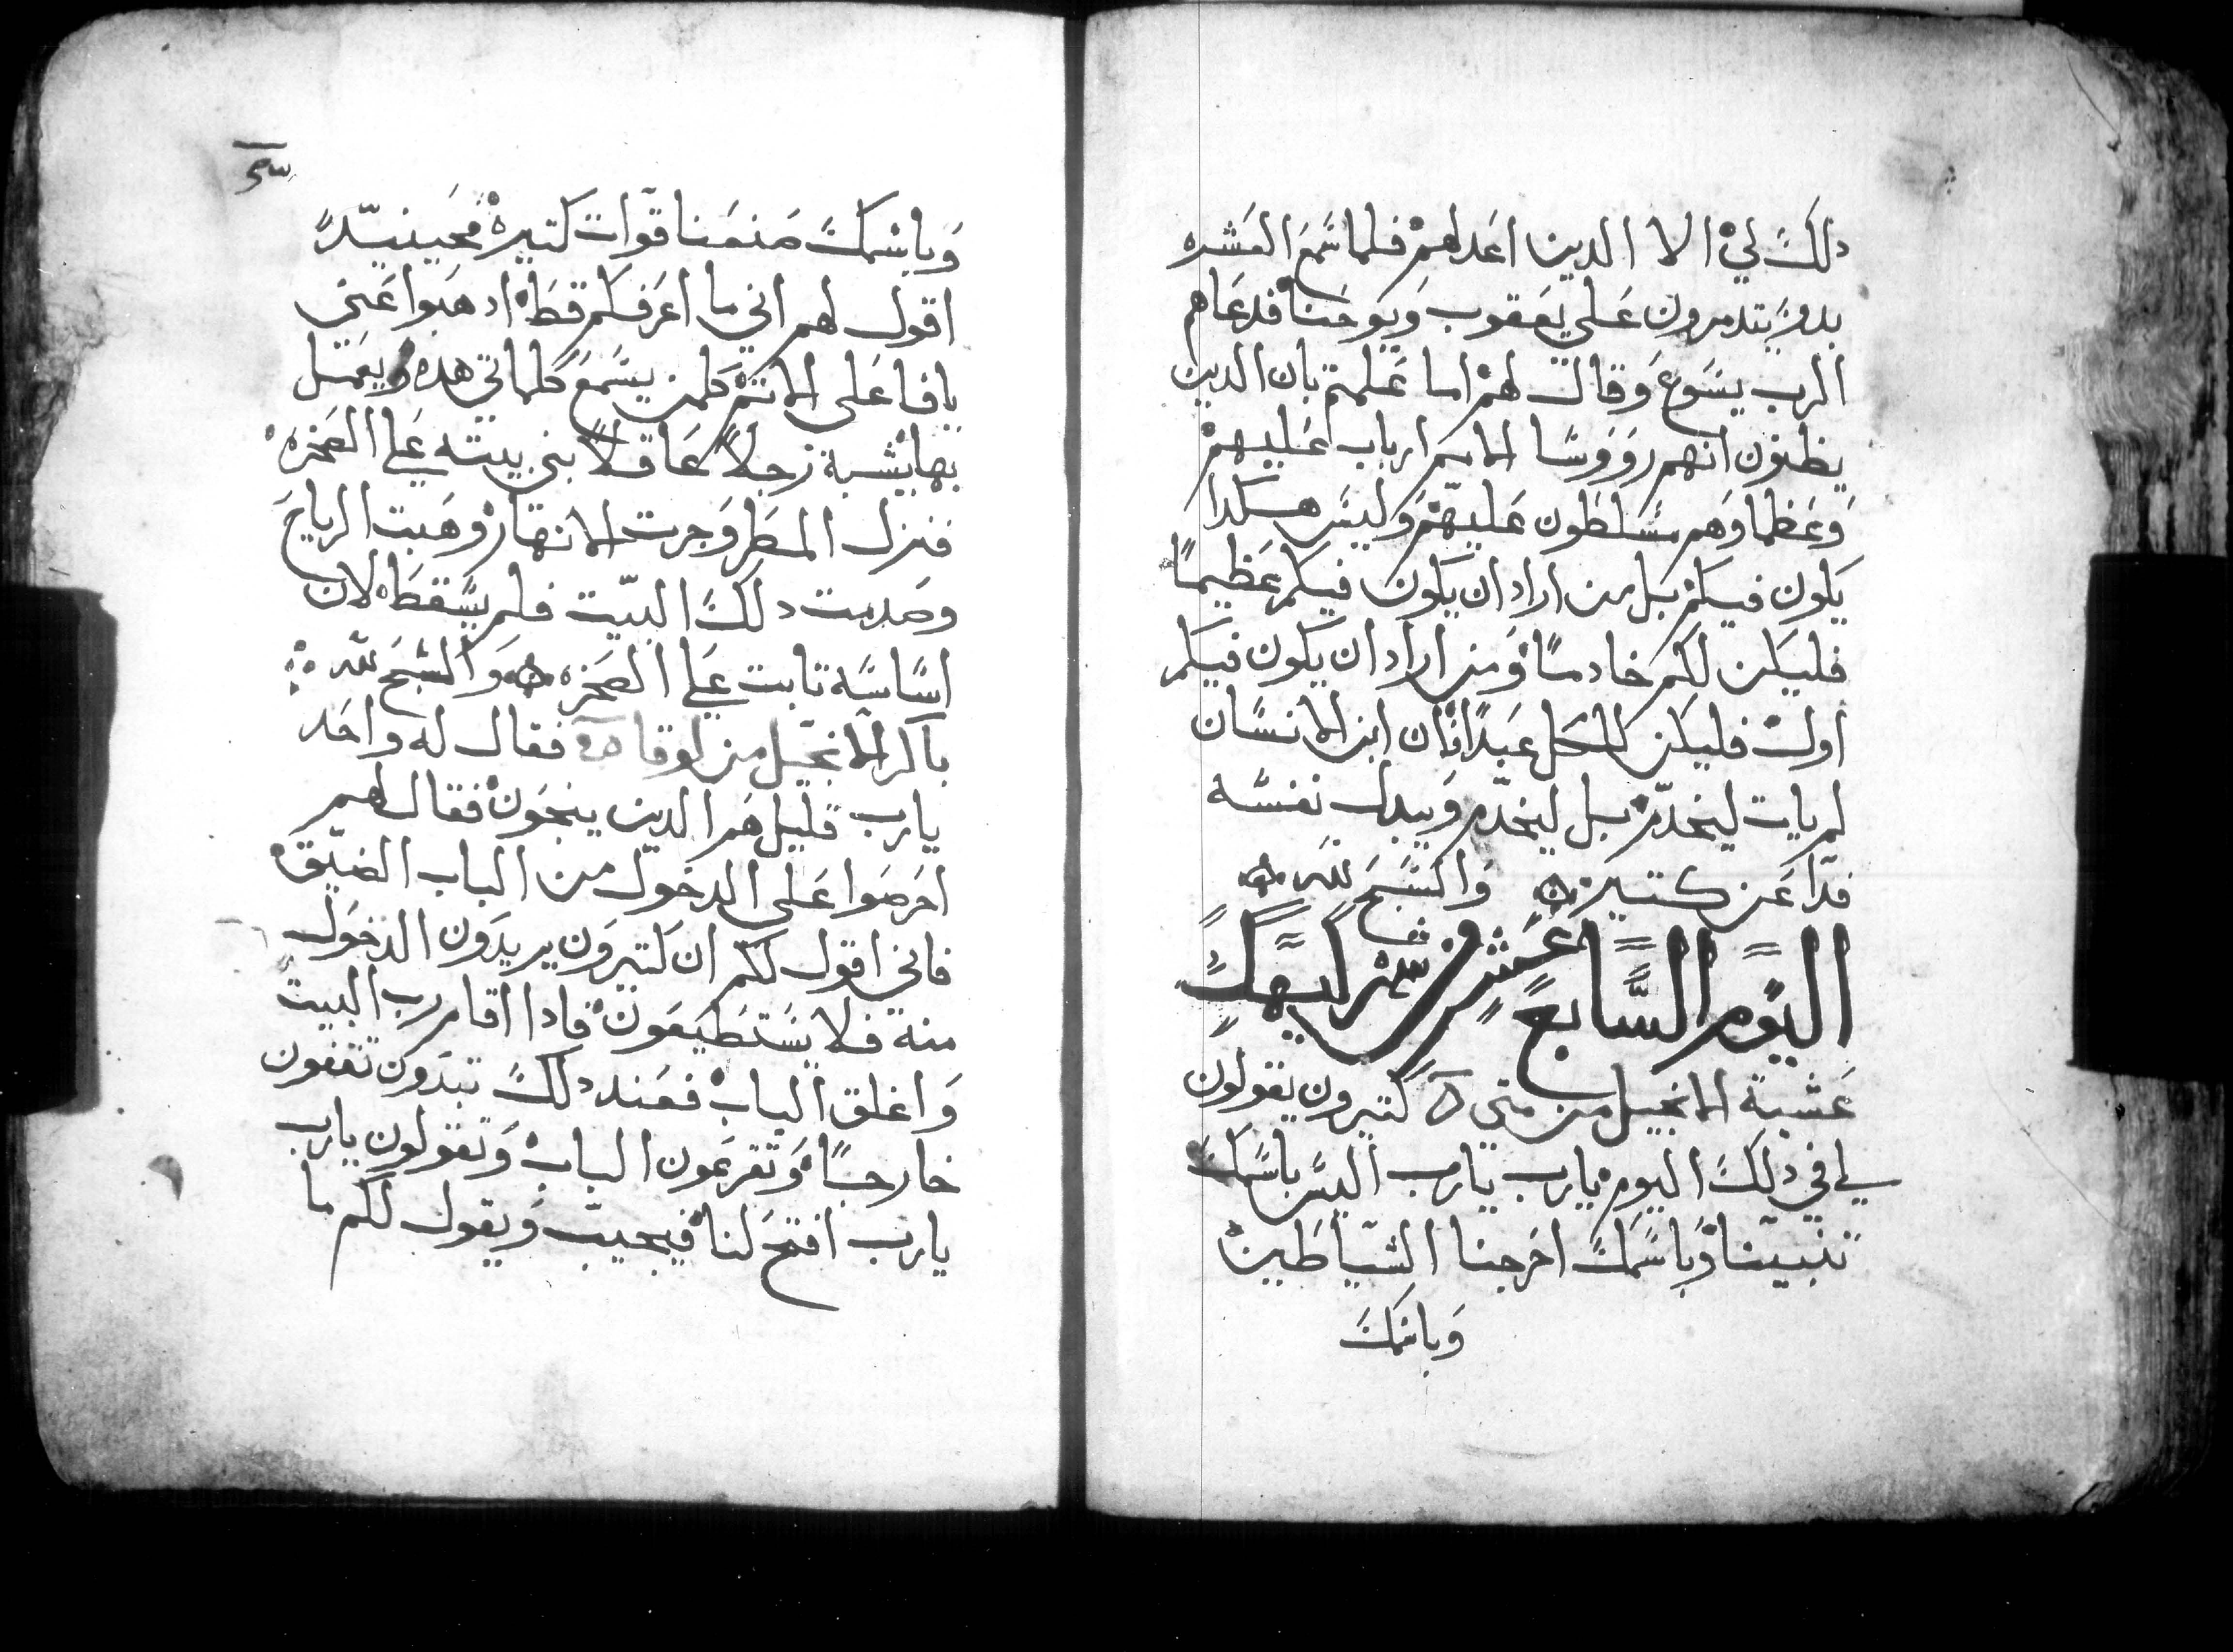 دلك لي الا الدين اعد لهم فلما سمع العشره
بدو يتدمرون علي يعقوب ويوحنا فدعاهم
الرب يسوع وقال لهم اما علمتم بان الدين
يظنون انهم رووسا الامم ارباب عليهم
وعظما وهم مسلطون عليهم وليس هكدا
يكون فيكم بل من اراد ان يكون فيكم عظيما
فليكن لكم خادما ومن اراد ان يكون فيكم
اول فليكن للكل عبدا فان ابن الانسان
لم يات ليخدم بل ليخدم ويبدل نفسه
فدا عن كتير والسبح لله
اليوم السابع عشر من شهر كيهك
عشية الانجيل من متي كتيرون يقولون
لي في دلك اليوم يارب يارب اليس باسمك
تنبينا وباسمك اخرجنا الشياطين
وباسمك
وباسمك صنعنا قوات كتيره فحينيد
اقول لهم اني ما اعرفكم قط ادهبوا عني
يا فاعلي الاتم كلمن يسمع كلماتي هده ويعمل
بها يشبه رجلا عاقلا بني بيته علي الصخره
فنزل المطر وجرت الانهار وهبت الرياح
وصدمت دلك البيت فلم يسقط لان
اساسه تابت علي الصخره والسبح لله
باكر الانجيل من لوقا فقال له واحد
يارب قليل هم الدين ينجون فقال لهم
احرصوا علي الدخول من الباب الضيق
فاني اقول لكم ان كتيرون يريدون الدخول
منه فلا يستطيعون فادا اقام رب البيت
واغلق الباب فعند دلك تبدون تقفون
خارجا وتقرعون الباب وتقولون يارب
يارب افتح لنا فيجيب ويقول لكم ما